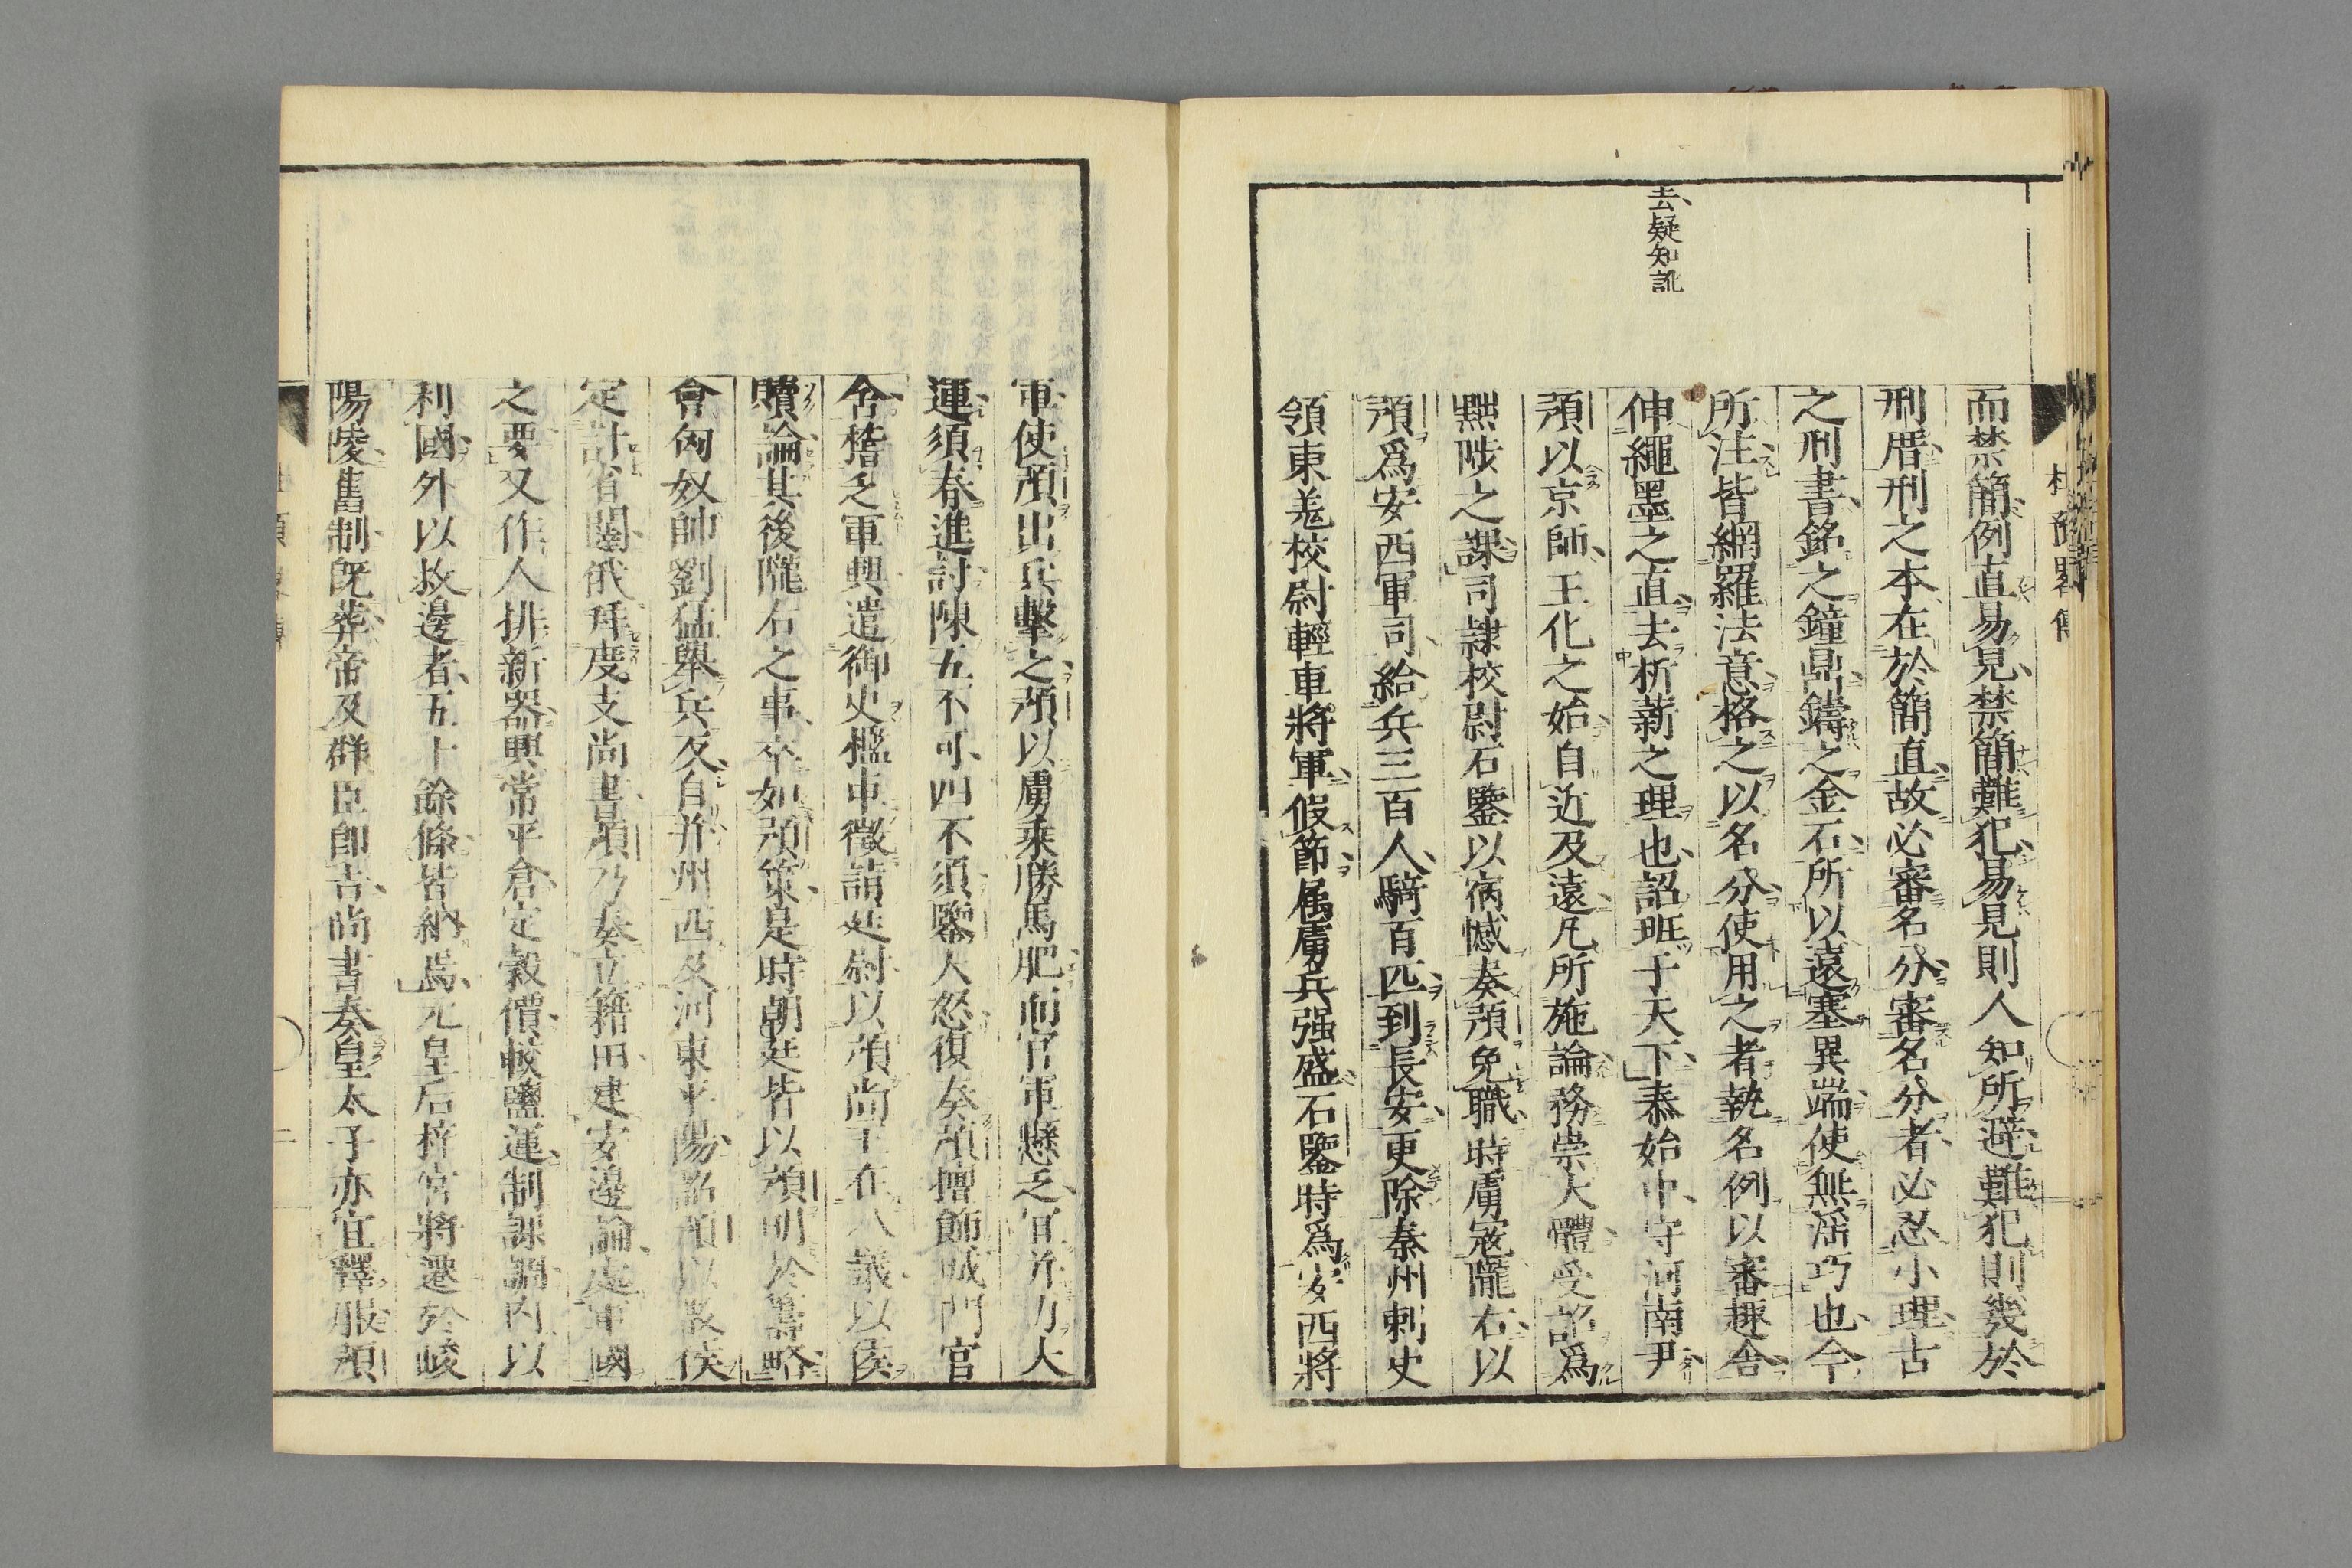 杜預畧傳
去疑知訛
而禁簡例直易見禁簡難犯易見則人知所避難犯則幾於
刑厝刑之本在於簡直故必審名分審名分者必忍小理古
之刑書銘之鐘鼎鑄之金石所以遠塞異端使無淫巧也今
所注皆網羅法意格之以名分使用之者執名例以審趣舎
伸繩墨之直去析薪之理也詔班于天下泰始中守河南尹
預以京師王化之始自近及遠凡所施論務崇大體受詔爲
黜陟之課司隷校尉石鑒以宿憾奏預免職時虜寇隴右以
預爲安西軍司給兵三百人騎百匹到長安更除秦州刺史
領東羗校尉輕車將軍假節属虜兵强盛石鑒時爲安西將
軍使預出兵擊之預以虜乘勝馬肥而官軍懸乏宜并力大
運須春進討陳五不可四不須鑒大怒復奏預擅飾城門官
舎稽乏軍興遣御史檻車徴詣廷尉以預尚主在八議以侯
贖論其後隴右之事卒如預策是時朝廷皆以預明於籌略
會匈奴帥劉猛舉兵反自并州西及河東平陽詔預以散侯
定計省闥俄拜度支尚書預乃奏立籍田建安邊論處軍國
之要又作人排新器興常平倉定穀價較鹽運制課調内以
利國外以救邊者五十餘條皆納焉元皇后梓宮將遷於峻
陽陵舊制既葬帝及群臣即吉尚書奏皇太子亦宜釋服預